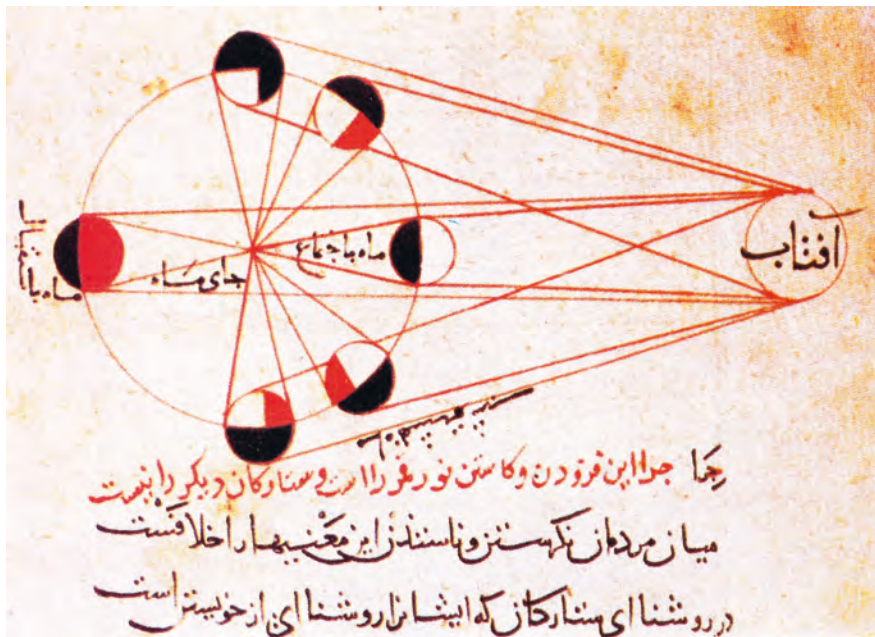 آفتاب
ماه باجتماع
جای ماه
ماه با
چرا جرا این فزودن وکاستن نور قمر را است وستارکان دیکر را نیست
میان مردمان نکرستن این معنیها را خلافست
در روشنا ای ستارکان که ایشانرا روشنا ای از خویشتن است